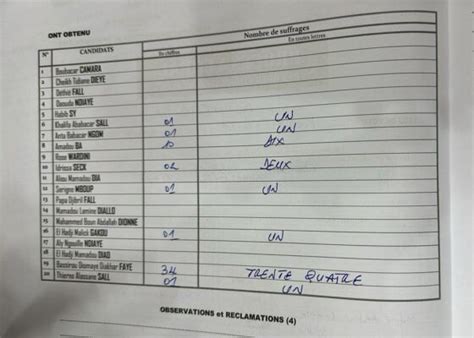 ONT OBTENU
N° CANDIDATS Nombre de suffrages
En chiffres En toutes lettres
1 Boubacar CAMARA
2 Cheikh Tidiane DIEYE
3 Dethié FALL
4 Daouda NDIAYE
5 Habib SY
6 Khalifa Ababacar SALL 01 UN
7 Anta Babacar NGOM 01 UN
8 Amadou BA 10 DIX
9 Rose WARDINI
10 Idrissa SECK 02 DEUX
11 Aliou Mamadou DIA
12 Serigne MBOUP 01 UN
13 Papa Djibril FALL
14 Mamadou Lamine DIALLO
15 Mahammed Boun Abdallah DIONNE
16 El Hadji Malick GAKOU 01 UN
17 Aly Ngouille NDIAYE
18 El Hadji Mamadou DIAO
19 Bassirou Diomaye Diakhar FAYE 34 TRENTE QUATRE
20 Thierno Alassane SALL 01 UN
OBSERVATIONS et RECLAMATIONS (4)